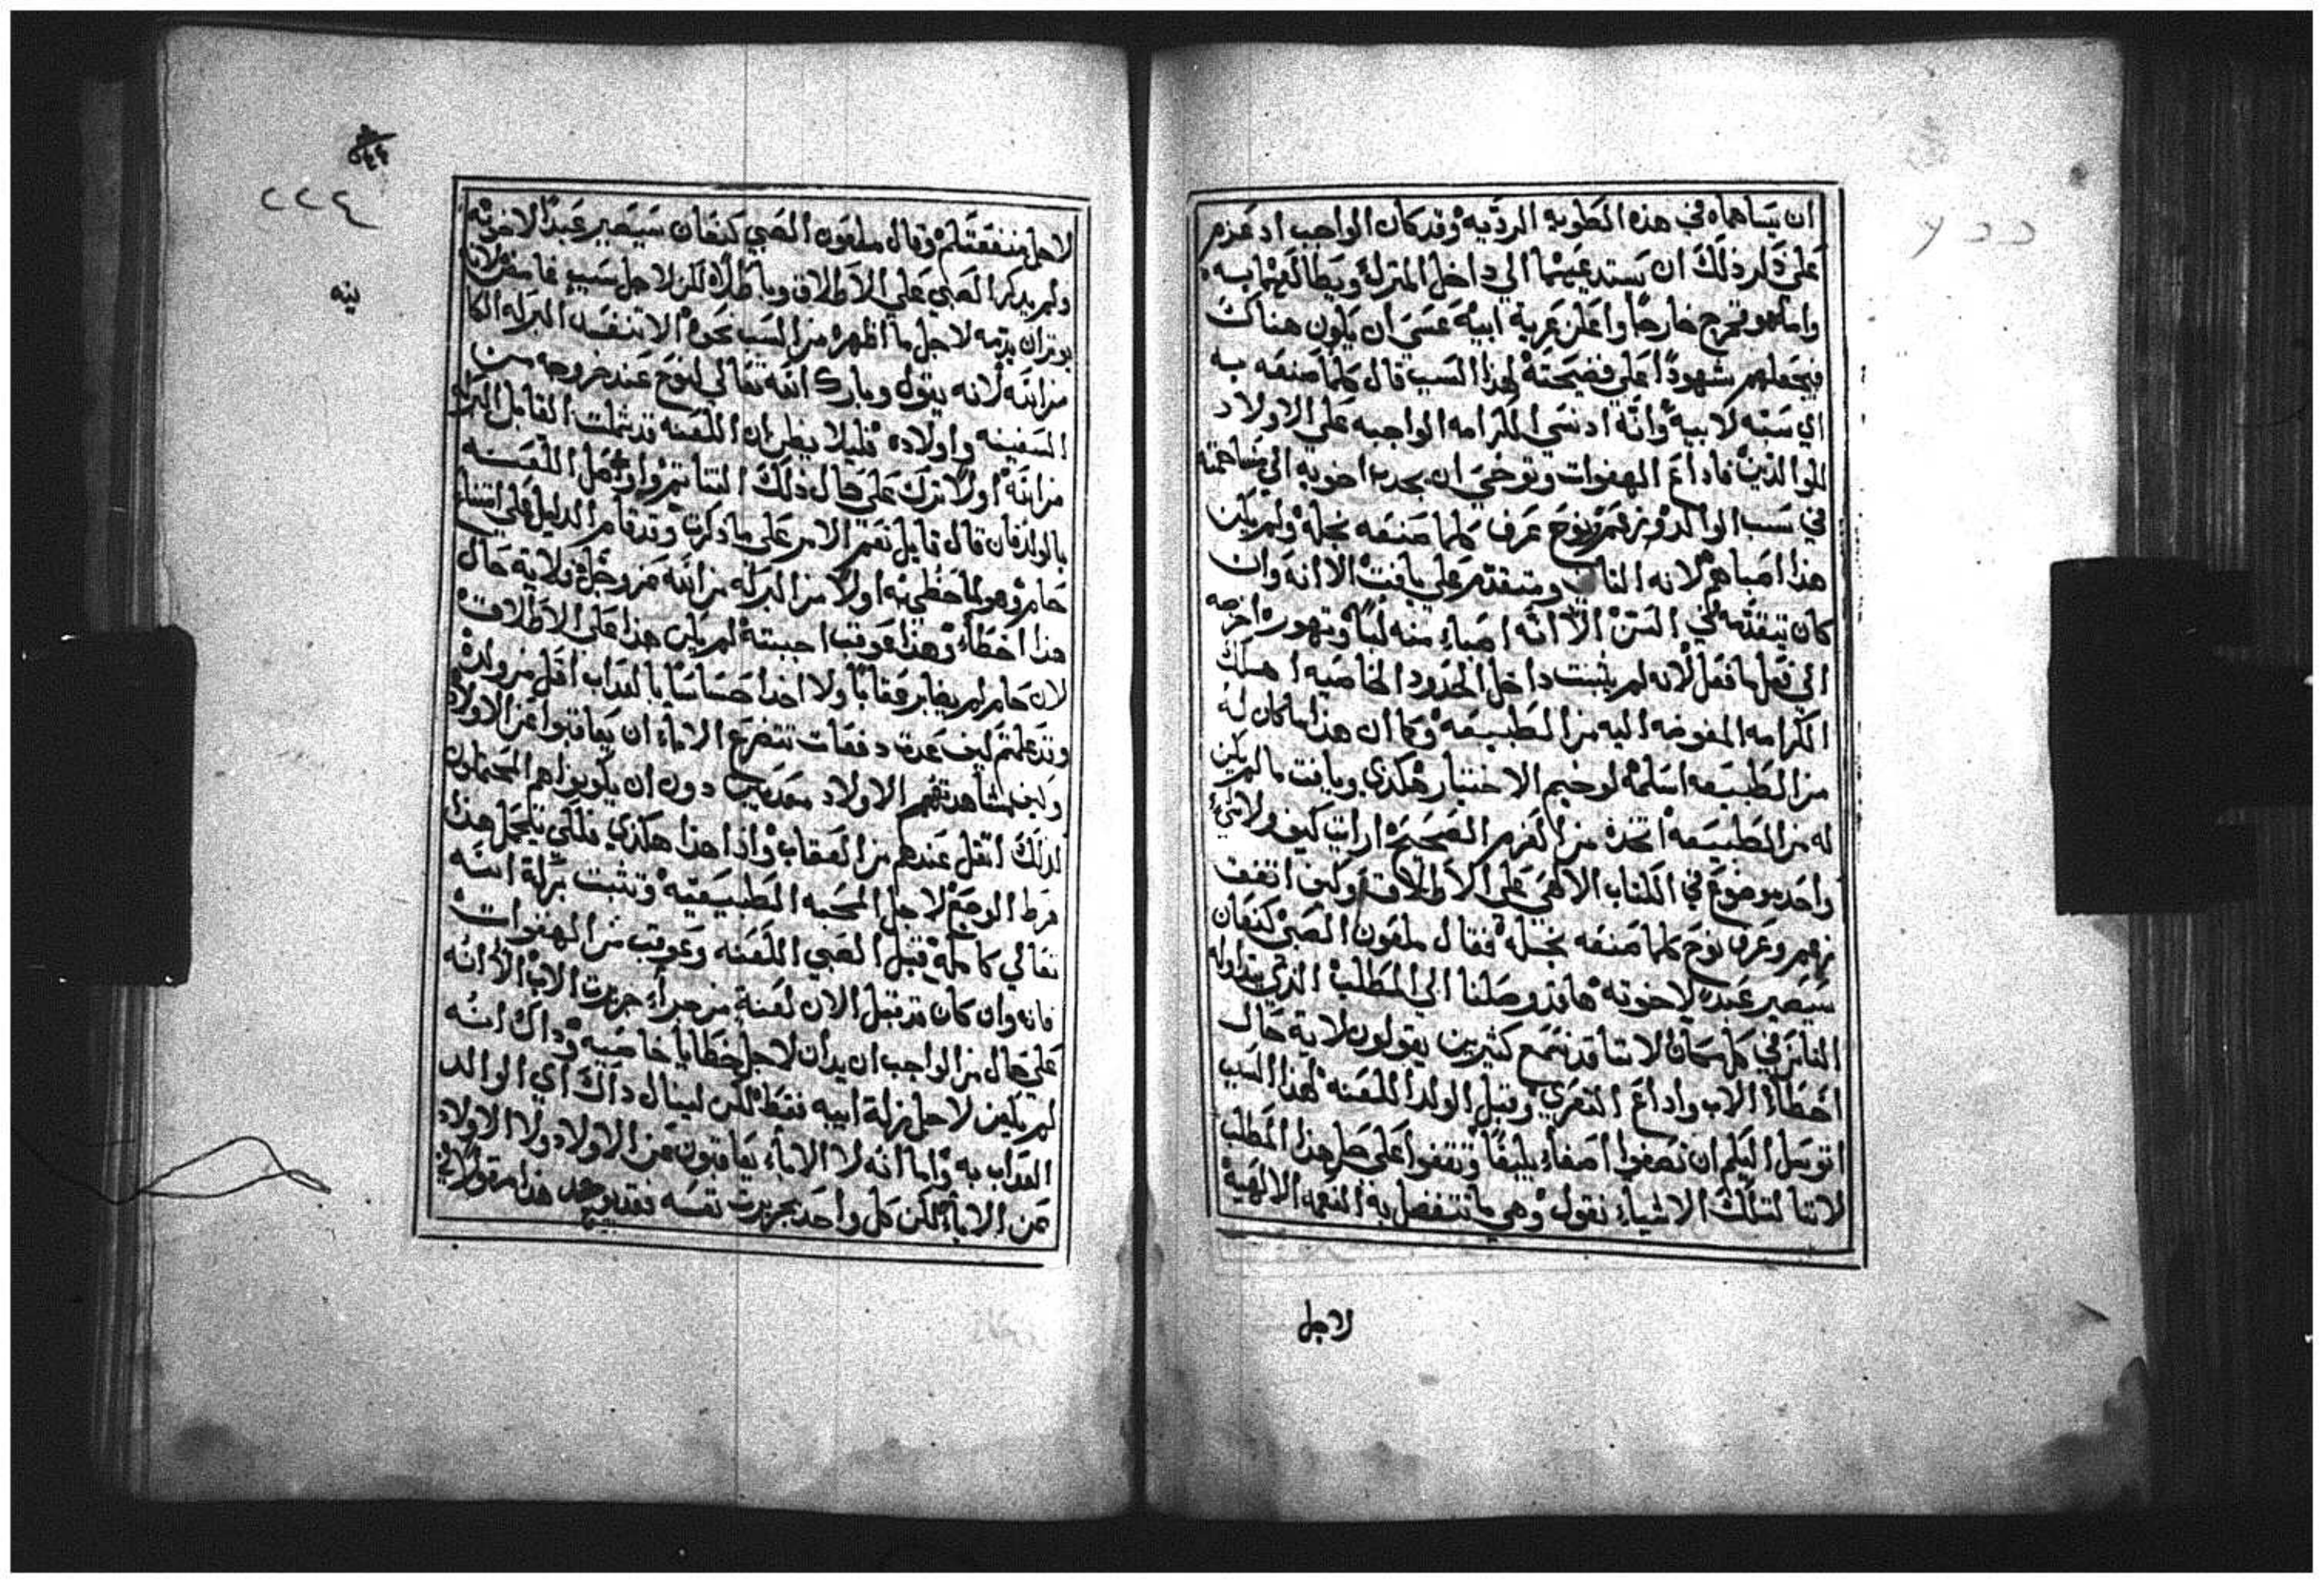 ان يساهماه في هذه الطويه الرديه وقد كان الواجب اذ عزم
علي ذكر ذلك ان يستدعيهما الي داخل المنزل ويطالعهما به
واما هو فخرج خارجًا واعلن عرية ابيه عسي ان يكون هناك
فيجعلهم شهودًا علي فضيحته لهذا السبب قال كلما صنعه به
اي سبّه لابيه وانه اذ نسي الكرامه الواجبه علي الاولاد
للوالدين فاذاع الهفوات وتوخي ان يجدب اخويه الي مساهمته
في سب الوالد ونزعم نوح عرف كلما صنعه نجله ولم يكن
هذا اصباهم لانه الثاني ومتقدم علي يافث الا انه وان
كان يتقدمه في السن الا انه اصباء منه لبًا وتهوره اخرجه
الي فعل ما فعل لانه لم يثبت داخل الحدود الخاصيه اهلك
الكرامه المفوضه اليه من الطبيعه وكما ان هذا ما كان له
من الطبيعه اسلمه لوخيم الاختيار هكذي ويافت ما لم يكن
له من الطبيعه اتخذه من العزم الصحيح ارايت كيف ولا شي
واحد موضوع في الكتاب الالهي علي الاطلاق وكيف اتفف
زعم وعرف نوح كلما صنعه نجله فقال ملعون الصبي كنعان
سيصير عبد لاخوته ها قد وصلنا الي المطلب الذي يتداوله
الناس في كل مكان لاننا قد نسمع كثيرين يقولون لاية حال
اخطاء الاب واداع التعري وقبل الولد اللعنه لهذا السبب
اتوسل اليكم ان تصغوا اصغاء بليغًا وتقفوا علي حل هذا المطلب
لاننا لتلك الاشياء نقول وهي ما تتفضل به النعمه الالهيه
لاجل
٢٢٤
لاجل منفعتكم وقال ملعون الصبي كنعان سيصير عبدًا لاخوته
ولم يدكر الصبي علي الاطلاق وباطلاه لكن لاجل سبب غامض لانه
يوتران يدمه لاجل ما اظهره من السب نحوه الا تنفسد البركه الكا
ينه
من الله لانه يقول وبارك الله تعالي لنوح عند خروجه من
السفينه واولاده فليلا يظن ان اللعنه قد شملت القابل البركه
من الله اولا ترك علي حال ذلك التناتم واوصل اللعنه
بالولد فان قال قايل نعم الامر علي ما ذكرت وقد قام الدليل علي اقتناء
حام وهو لما حظي به اولا من البركه من الله عز وجل فلاية حال
هذا اخطاء وهذا عوقب اجبته لم يكن هذا علي الاطلاق
لان حام لم يغاير عقابًا ولا اخدا حساسًا بالعداب اقل من ولده
وقد علمتم كيف عدة دفعات تتضرع الاباء ان يعاقبوا عن الاولاد
وكيف مشاهدتهم الاولاد معدبين دون ان يكونوا هم المحتملون
لدلك اثقل عندهم من العقاب واذا هذا هكذي فلكي يكمل هذا
فرط الوجع لاجل المحبه الطبيعيه وتثبت بركة الله
تعالي كامله قبل الصبي اللعنه وعوقب من الهفوات
فانه وان كان قد قبل الان لعنة من جراء جريرت الاب الا انه
علي حال من الواجب ان يدان لاجل خطايا خاصيه وداك انه
لم يكن لاجل زلة ابيه فقط لكن لينال داك اي الوالد
العداب به واما انه لا الاباء يعاقبون عن الاولاد ولا الاولاد
عن الاباء لكن كل واحد بجريرت نفسه فقد يوجد هذا مقولا في